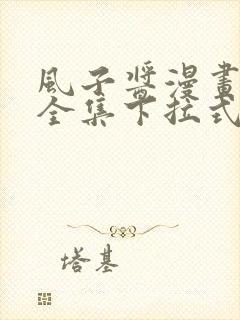 風子醬漫畫
全集下拉式
塔基